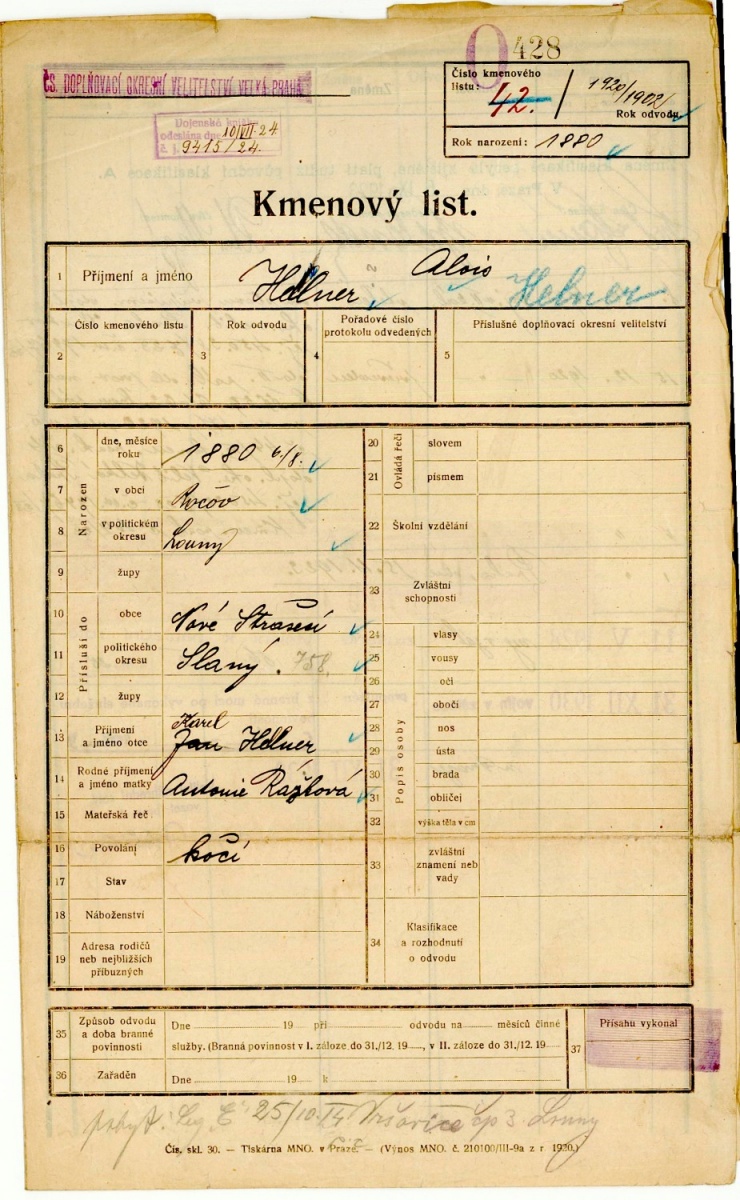 428
ČS. DOPLŇOVACÍ OKRESNÍ VELITELSTVÍ VELKÁ PRAHA
Číslo kmenového
listu: 42. / 1920/1902
Rok odvodu
Rok narození: 1880
Vojenská knížka
odeslána dne 10/VII-24
č. j. 9415/24.
Kmenový list.
1 Příjmení a jméno Helner Alois Helner
2 Číslo kmenového listu
3 Rok odvodu
4 Pořadové číslo
protokolu odvedených
5 Příslušné doplňovací okresní velitelství
Narozen
6 dne, měsíce
roku 1880 6/8.
7 v obci Ročov
8 v politickém
okresu Louny
9 župy
Přísluší do
10 obce Nové Strašecí
11 politického
okresu Slaný. 758.
12 župy
13 Příjmení
a jméno otce Karel
Jan Helner
14 Rodné příjmení
a jméno matky Antonie Rážlová
15 Mateřská řeč
16 Povolání kočí
17 Stav
18 Náboženství
19 Adresa rodičů
neb nejbližších
příbuzných
Ovládá řeči
20 slovem
21 písmem
22 Školní vzdělání
23 Zvláštní
schopnosti
Popis osoby
24 vlasy
25 vousy
26 oči
27 obočí
28 nos
29 ústa
30 brada
31 obličej
32 výška těla v cm
33 zvláštní
znamení neb
vady
34 Klasifikace
a rozhodnutí
o odvodu
35 Způsob odvodu
a doba branné
povinnosti
Dne 19 při odvodu na měsíců činné
služby. (Branná povinnost v I. záloze do 31./12. 19, v II. záloze do 31./12. 19
36 Zařaděn
Dne 19 k
37 Přísahu vykonal
25/10. Vršovice čp 3 Louny
Čís. skl. 30. — Tiskárna MNO. v Praze. — (Výnos MNO. č. 210100/III-9a z r 1920.)